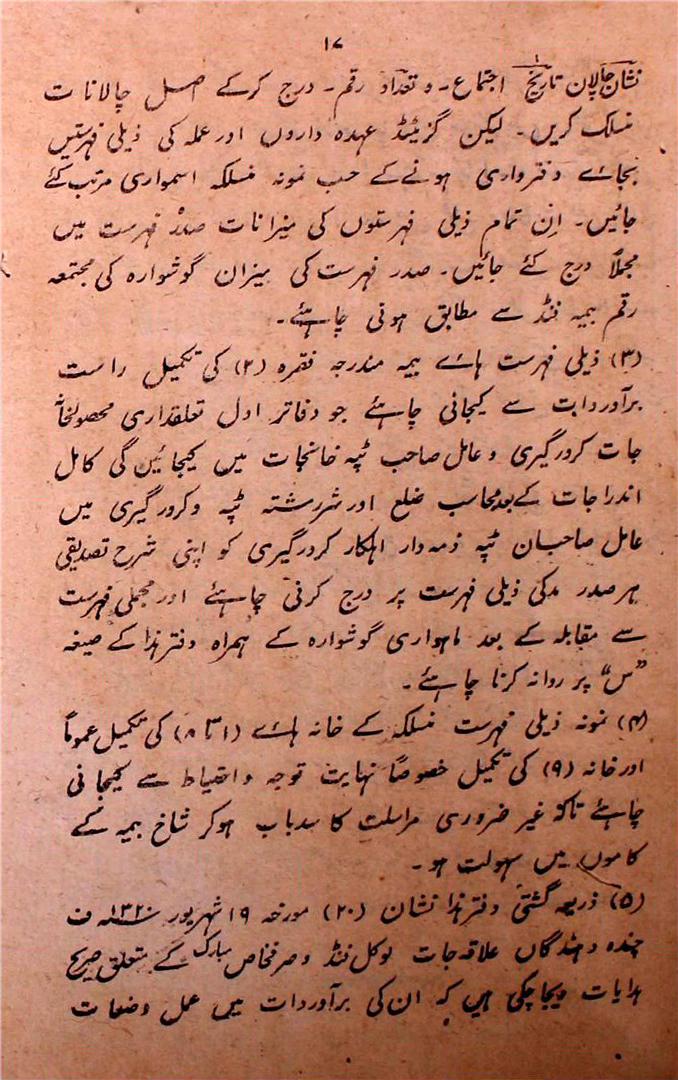 ۱۷
نشان چالان تاریخ اجتماع۔ و تعداد رقم۔ درج کرکے اصل چالانات
منسلک کریں۔ لیکن گزیٹڈ عہدہ داروں اور عملہ کی ذیلی فہرستیں
بجائے دفترواری ہونے کے حسب نمونہ منسلکہ اسمواری مرتب کئے
جائیں۔ ان تمام ذیلی فہرستوں کی میزانات صدر فہرست میں
مجملاً درج کئے جائیں۔ صدر فہرست کی میزان گوشوارہ کی مجتمعہ
رقم بیمہ فنڈ سے مطابق ہونی چاہئے۔
(۳) ذیلی فہرست ہائے بیمہ مندرجہ فقرہ (۲) کی تکمیل راست
برآوردات سے کیجانی چاہئے جو دفاتر اول تعلقداری محصولخانہ
جات کروڑگیری و عامل صاحب ٹپہ خانجات میں کیجائیں گی کامل
اندراجات کے بعد محاسب ضلع اور سررشتہ ٹپہ وکروڑگیری میں
عامل صاحبان ٹپہ ذمہ دار اہلکار کروڑگیری کو اپنی شرح تصدیقی
ہر صدر مد کی ذیلی فہرست پر درج کرنی چاہئے اور مجملی فہرست
سے مقابلہ کے بعد ماہواری گوشوارہ کے ہمراہ دفتر ہذا کے صیغہ
”س“ پر روانہ کرنا چاہئے۔
(۴) نمونہ ذیلی فہرست منسلکہ کے خانہ ہائے (۱ تا ۸) کی تکمیل عموماً
اور خانہ (۹) کی تکمیل خصوصاً نہایت توجہ واحتیاط سے کیجانی
چاہئے تاکہ غیر ضروری مراسلت کا سدباب ہوکر شاخ بیمہ کے
کاموں میں سہولت ہو۔
(۵) ذریعہ گشتی دفتر ہذا نشان (۲۰) مورخہ ۱۹ شہریور ۱۳۲۰ ف
چندہ دہندگان علاقہ جات لوکل فنڈ وصرفخاص مبارک کے متعلق صریح
ہدایات دیجاچکی ہیں کہ ان کی برآوردات میں عمل وضعات